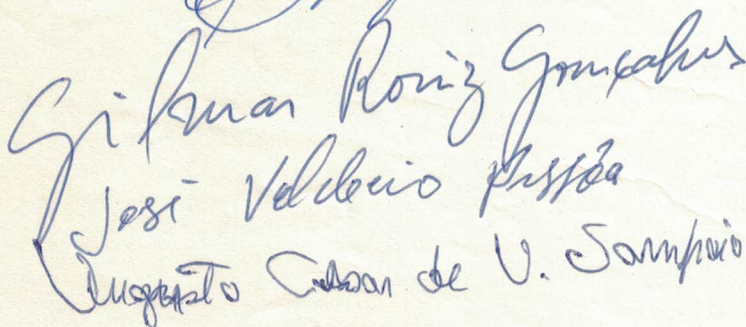 Gilmar Roriz Gonçalves
José Valdecio Pessôa
Augusto Cesar de V. Sampaio